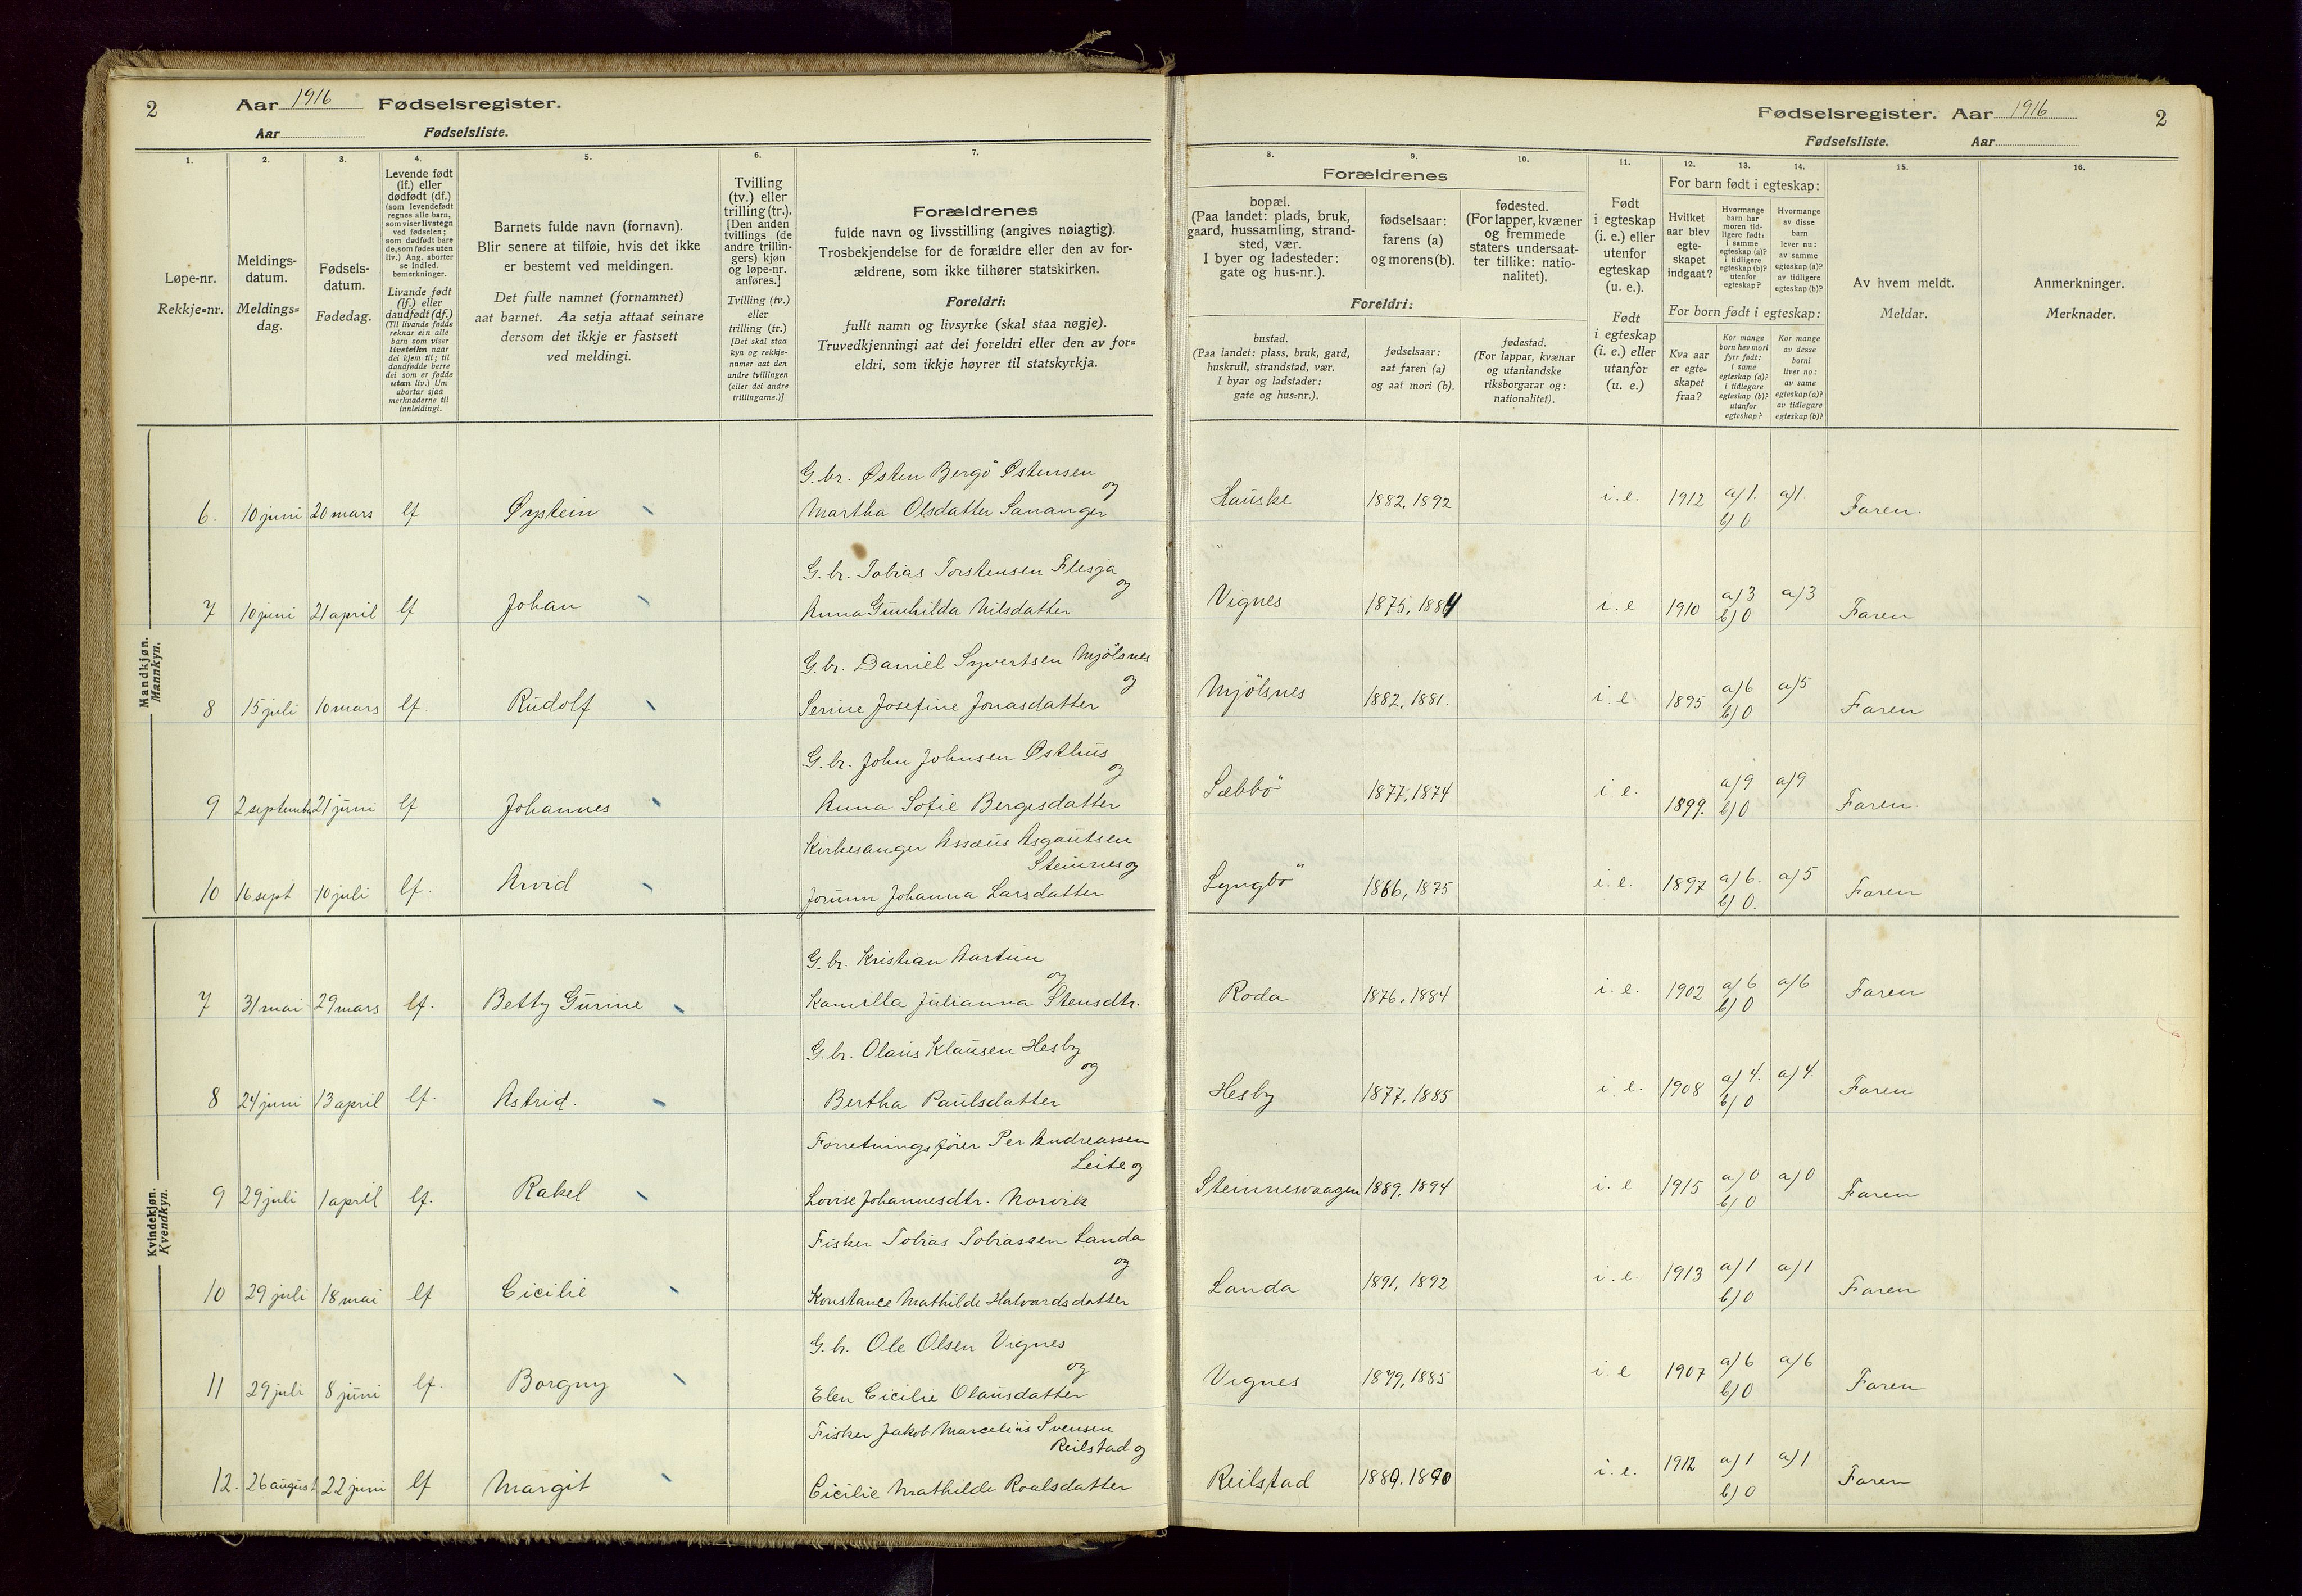 2 Aar 1916 Fødselsregister.
Aar Fødselsliste.
Fødselsregister. Aar 1916 2
Fødselsliste. Aar
1. 2. 3. 4. 5. 6. 7.
Løpe-nr.
Rekkje=nr.
Meldings-
datum.
Meldings=
dag.
Fødsels-
datum.
Fødedag.
Levende født
(lf.) eller
dødfødt (df.)
(som levendefødt
regnes alle barn,
som viser livstegn
ved fødselen;
som dødfødt bare
de, som fødes uten
liv.) Ang. aborter
se indled.
bemerkninger.
Livande født
(lf.) eller
daudfødt (df.)
(Til livande fødde
reknar ein alle
barn som viser
livsteikn naar
dei kjem til; til
daudfødde berre
dei som er fødde
utan liv.) Um
abortar sjaa
merknaderne til
innleidingi.
Barnets fulde navn (fornavn).
Blir senere at tilføie, hvis det ikke
er bestemt ved meldingen.
Det fulle namnet (fornamnet)
aat barnet. Aa setja attaat seinare
dersom det ikkje er fastsett
ved meldingi.
Tvilling
(tv.) eller
trilling (tr.).
[Den anden
tvillings (de
andre trillin-
gers) kjøn
og løpe-nr.
anføres.]
Tvilling (tv.)
eller
trilling (tr.)
[Det skal staa
kyn og rekkje-
numer aat den
andre tvillingen
(eller dei andre
trillingarne.)]
Forældrenes
fulde navn og livsstilling (angives nøiagtig).
Trosbekjendelse for de forældre eller den av for-
ældrene, som ikke tilhører statskirken.
Foreldri:
fullt namn og livsyrke (skal staa nøgje).
Truvedkjenningi aat dei foreldri eller den av for=
eldri, som ikkje høyrer til statskyrkja.
8. 9. 10. 11. 12. 13. 14. 15. 16.
Forældrenes
bopæl.
(Paa landet: plads, bruk,
gaard, hussamling, strand-
sted, vær.
I byer og ladesteder:
gate og hus-nr.).
fødselsaar:
farens (a)
og morens (b).
fødested.
(For lapper, kvæner
og fremmede
staters undersaat-
ter tillike: natio-
nalitet).
Foreldri:
bustad.
(Paa landet: plass, bruk, gard,
huskrull, strandstad, vær.
I byar og ladstader:
gate og hus=nr.).
fødselsaar:
aat faren (a)
og aat mori (b).
fødestad.
(For lappar, kvænar
og utanlandske
riksborgarar og:
nationalitet).
Født
i egteskap
(i. e.) eller
utenfor
egteskap
(u. e.).
Født
i egteskap
(i. e.) eller
utanfor
(u. e.)
For barn født i egteskap:
Hvilket
aar blev
egte-
skapet
indgaat?
Hvormange
barn har
moren tid-
ligere født:
i samme
egteskap (a)?
i tidligere
egteskap (b)?
utenfor
egteskap?
Hvormange
av disse
barn
lever nu:
av samme
egteskap (a)?
av tidligere
egteskap (b)?
For born født i egteskap:
Kva aar
er egte=
skapet
fraa?
Kor mange
born hev mori
fyrr født:
i same
egteskap (a)?
i tidlegare
egteskap (b)?
utanfor
egteskap?
Kor mange
av desse
borni
liver no:
av same
egteskap (a)?
av tidlegare
egteskap (b)?
Av hvem meldt.
Meldar.
Anmerkninger.
Merknader.
Mandkjøn.
Mannkyn.
G. br. Østen Bergö Østensen
og
6. 10 juni 20 mars lf Øystein Martha Olsdatter Sananger Hauske 1882, 1892 i. e. 1912 a/1. a/1. Faren.
b/0
G. br. Tobias Torstensen Flesja
og
7 10 juni 21 april lf Johan Anna Gunhilda Nilsdatter Vignes 1875, 1884 i. e 1910 a/3 a/3 Faren
b/0
G. br. Daniel Syvertsen Mjölsnes
og
8 15 juli 10 mars lf. Rudolf Serine Josefine Jonasdatter Mjölsnes 1882, 1881. i. e. 1895 a/6 a/5 Faren
b/0
G. br. John Johnsen Østhus
og
9 2 september 21 juni lf Johannes Anna Sofie Bergesdatter Sæbbö 1877, 1874 i. e. 1899. a/9 a/9 Faren.
b/0
Kirkesanger Assæus Asgautsen
Steinnes og
10 16 sept 10 juli lf. Arvid Jorunn Johanna Larsdatter Lyngbö 1866, 1875 i. e. 1897 a/6. a/5 Faren
b/0.
Kvindekjøn.
Kvendkyn.
G. br. Kristian Aartun
og
7 31 mai 29 mars lf. Betty Gurine Kamilla Julianna Stensdtr. Roda 1876, 1884 i. e. 1902 a/6 a/6 Faren
b/0
G. br. Olaus Klausen Hesby
og
8 24 juni 13 april lf. Astrid. Bertha Paulsdatter Hesby 1877, 1885 i. e. 1908 a/4. a/4. Faren
b/0
Forretningsfører Per Andreassen
Leite og
9 29 juli 1 april lf. Rakel Lovise Johannesdtr. Norvik Steinnesvaagen 1889, 1894 i. e 1915 a/0 a/0 Faren
b/0
Fisker Tobias Tobiassen Landa
og
10 29 juli 18 mai lf Cicilie Konstance Mathilde Halvardsdatter Landa 1891, 1892 i. e. 1913 a/1 a/1 Faren
b/0
G. br. Ole Olsen Vignes
og
11 29 juli 8 juni lf. Borgny Elen Cicilie Olausdatter Vignes 1879, 1885 i. e 1907 a/6 a/6 Faren
b/0
Fisker Jakob Marcelius Svensen
Reilstad og
12. 26 august 22 juni lf Margit Cicilie Mathilde Roalsdatter Reilstad 1889, 1890 i. e. 1912 a/1 a/1 Faren
b/0